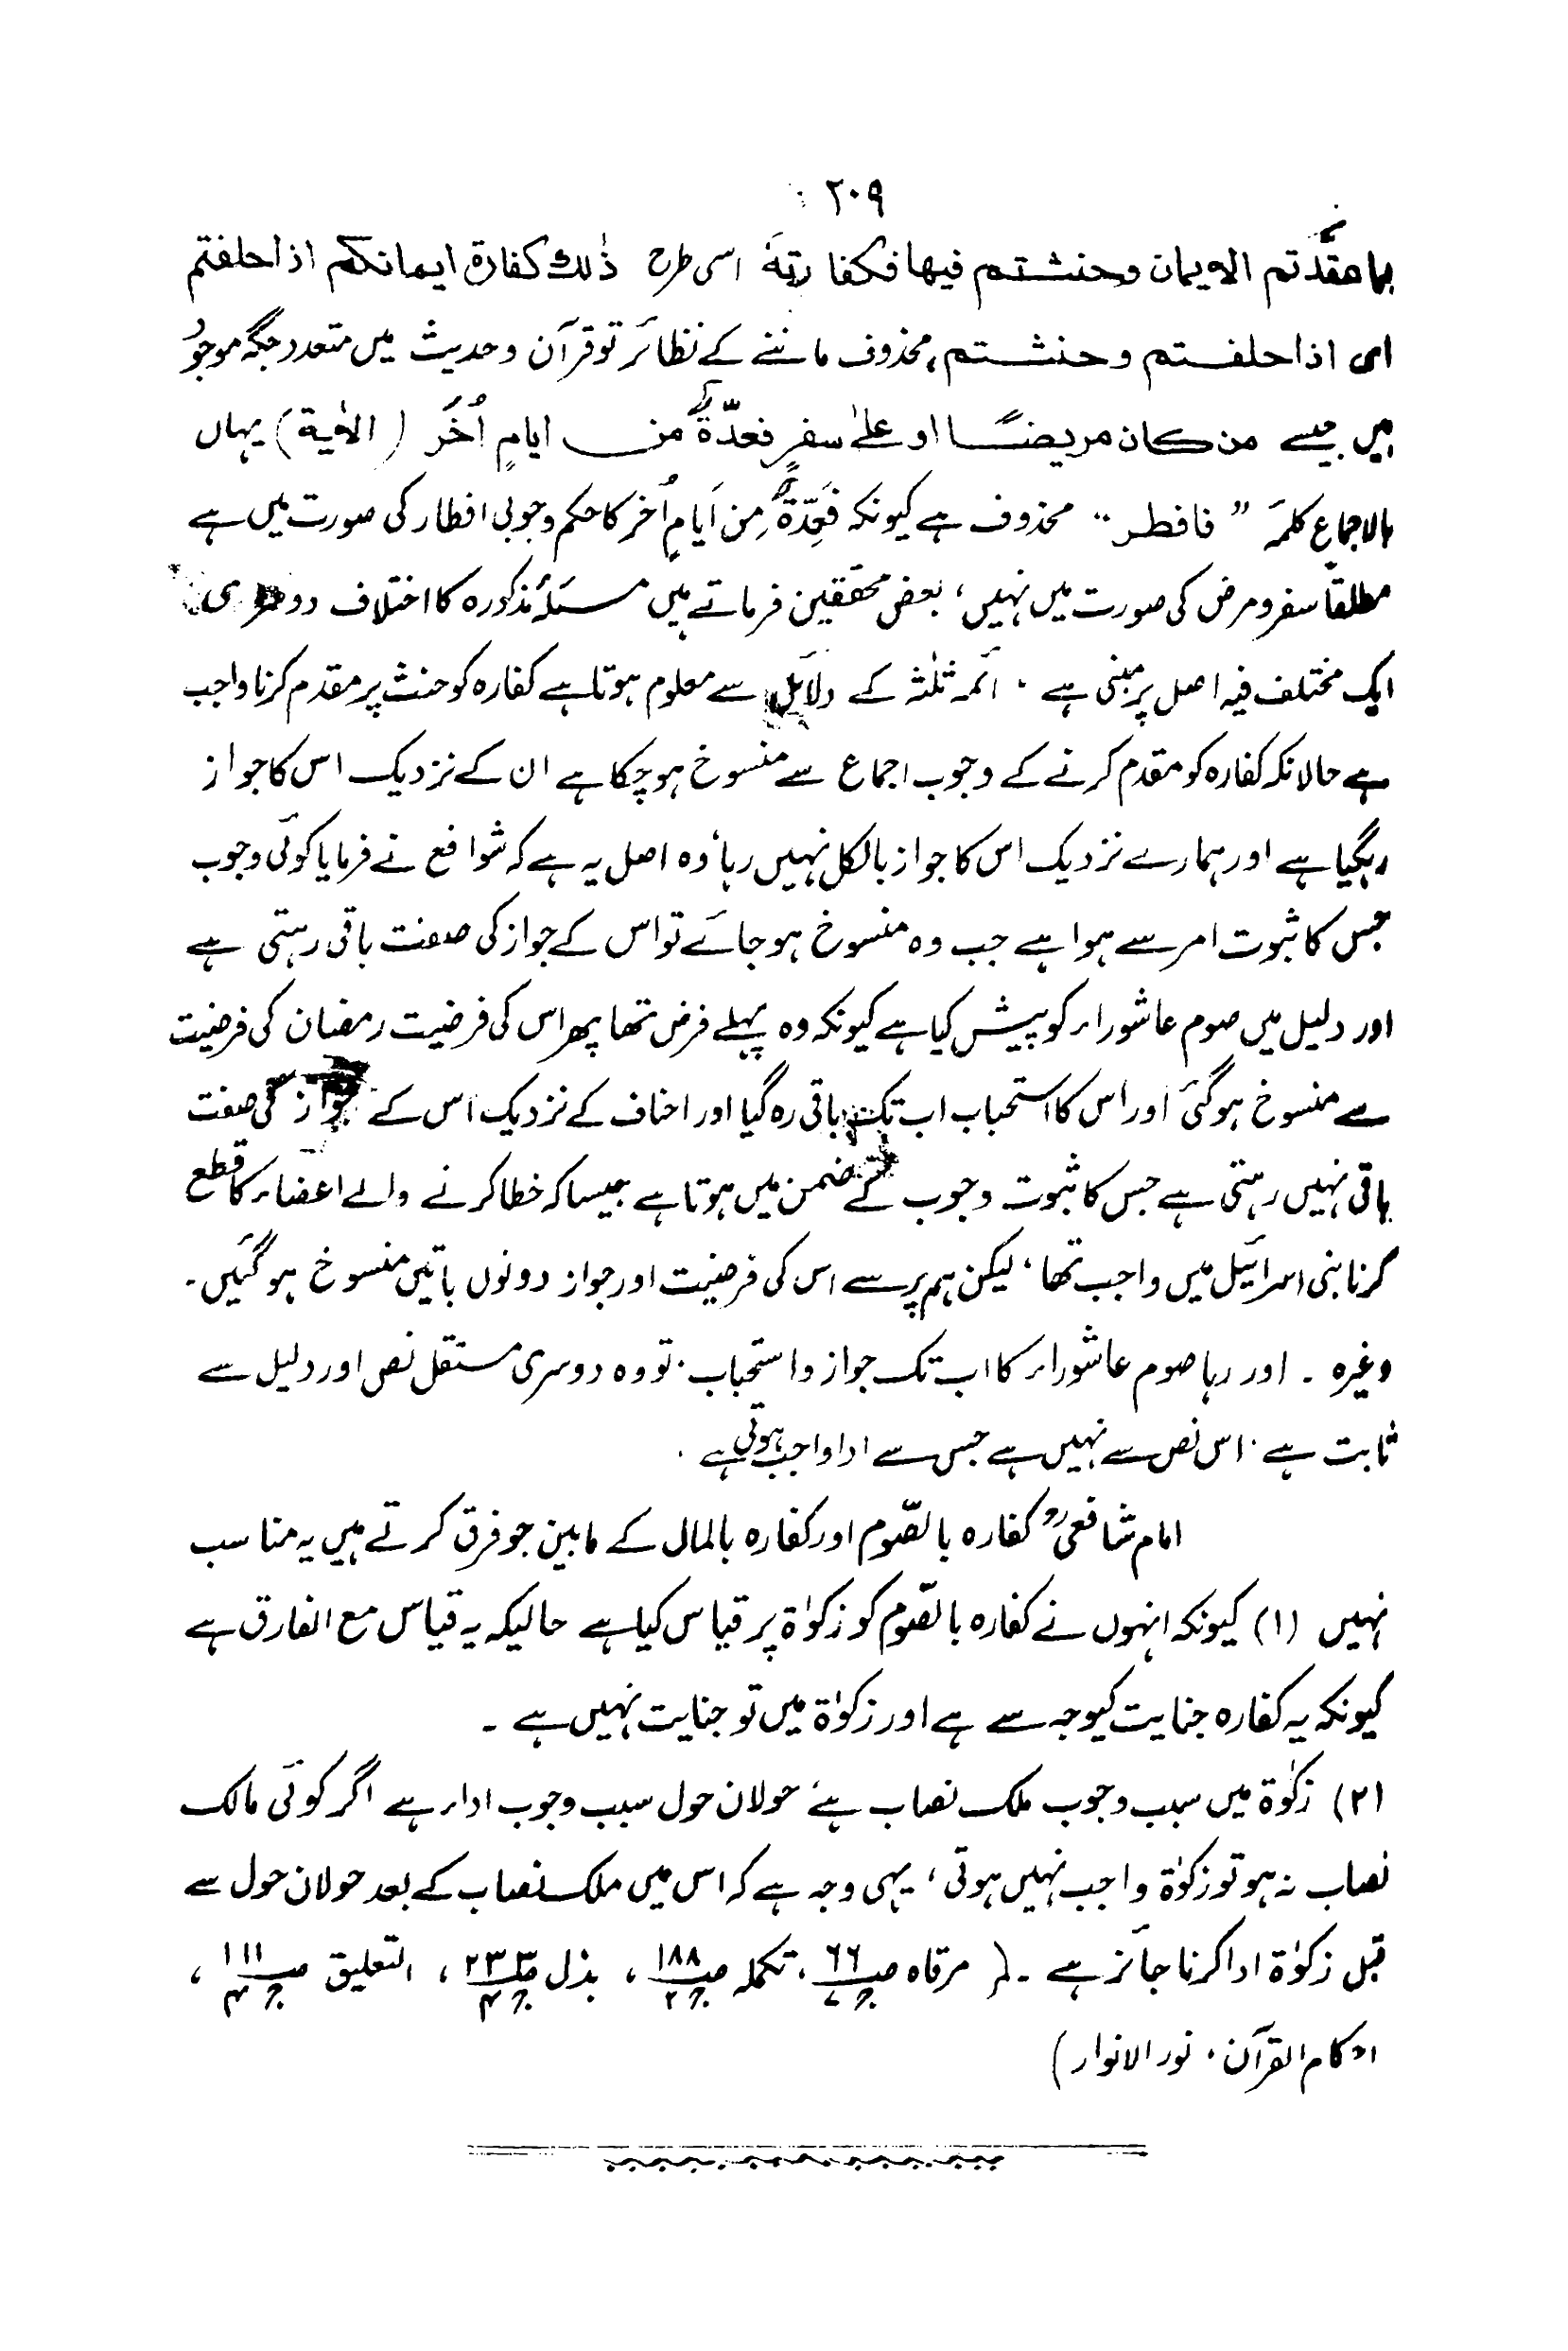 ۲۰۹
بما عقّدتم الایمان وحنثتم فیھا فکفارتہٗ اسی طرح ذٰلك کفارة ایمانکم اذا حلفتم
ای اذا حلفتم وحنثتم، محذوف ماننے کے نظائر تو قرآن وحدیث میں متعدد جگہ موجود
ہیں جیسے من کان مریضًا او علیٰ سفرٍ فعدّةٌ من ایامٍ اُخَر (الاٰیة) یہاں
بالاجماع کلمۂ ”فافطر“ محذوف ہے کیونکہ فَعِدّةٌ مِن اَیامٍ اُخر کا حکم وجوبی افطار کی صورت میں ہے
مطلقاً سفر ومرض کی صورت میں نہیں، بعض محققین فرماتے ہیں مسئلۂ مذکورہ کا اختلاف دوسری
ایک مختلف فیہ اصل پر مبنی ہے ۔ ائمہ ثلٰثہ کے دلائل سے معلوم ہوتا ہے کفارہ کو حنث پر مقدم کرنا واجب
ہے حالانکہ کفارہ کو مقدم کرنے کے وجوب اجماع سے منسوخ ہوچکا ہے ان کے نزدیک اس کا جواز
رہگیا ہے اور ہمارے نزدیک اس کا جواز بالکل نہیں رہا، وہ اصل یہ ہے کہ شوافع نے فرمایا کوئی وجوب
جس کا ثبوت امر سے ہوا ہے جب وہ منسوخ ہوجائے تو اس کے جواز کی صفت باقی رہتی ہے
اور دلیل میں صوم عاشوراء کو پیش کیا ہے کیونکہ وہ پہلے فرض تھا پھر اس کی فرضیت رمضان کی فرضیت
سے منسوخ ہوگئی اور اس کا استحباب اب تک باقی رہ گیا اور احناف کے نزدیک اس کے جواز کی صفت
باقی نہیں رہتی ہے جس کا ثبوت وجوب کے ضمن میں ہوتا ہے جیسا کہ خطا کرنے والے اعضاء کا قطع
کرنا بنی اسرائیل میں واجب تھا، لیکن ہم پر سے اس کی فرضیت اور جواز دونوں باتیں منسوخ ہوگئیں۔
وغیرہ ۔ اور رہا صوم عاشوراء کا اب تک جواز واستحباب ۔ تو وہ دوسری مستقل نص اور دلیل سے
ثابت ہے ۔ اس نص سے نہیں ہے جس سے ادا واجب ہوتی ہے ۔
امام شافعیؒ کفارہ بالصّوم اور کفارہ بالمال کے مابین جو فرق کرتے ہیں یہ مناسب
نہیں (۱) کیونکہ انہوں نے کفارہ بالصّوم کو زکوٰۃ پر قیاس کیا ہے حالیکہ یہ قیاس مع الفارق ہے
کیونکہ یہ کفارہ جنایت کیوجہ سے ہے اور زکوٰۃ میں تو جنایت نہیں ہے ۔
(۲) زکوٰۃ میں سبب وجوب ملک نصاب ہے، حولان حول سبب وجوب اداء ہے اگر کوئی مالک
نصاب نہ ہو تو زکوٰۃ واجب نہیں ہوتی، یہی وجہ ہے کہ اس میں ملک نصاب کے بعد حولان حول سے
قبل زکوٰۃ ادا کرنا جائز ہے ۔ (مرقاہ ص۶۶ ج۷، تکملہ ص۱۸۸ ج۲، بذل ص۲۳۳ ج۴، التعلیق ص۱۱۱ ج۴،
احکام القرآن، نور الانوار)